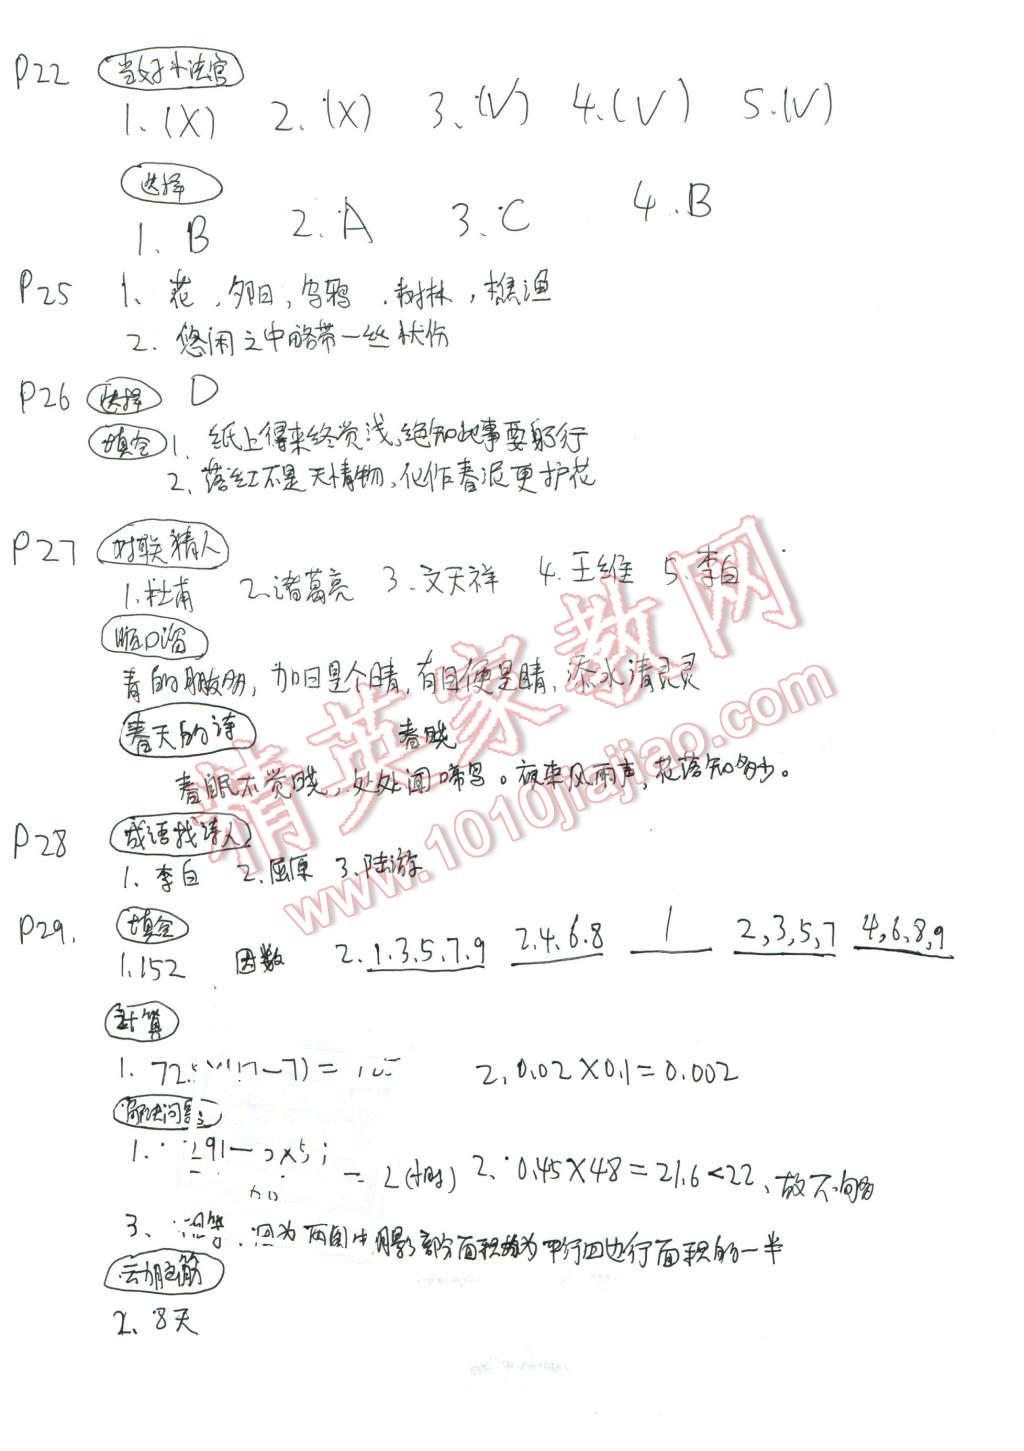 P22 当好小法官
1.(X) 2.(X) 3.(V) 4.(V) 5.(V)
选择
1. B 2. A 3. C 4. B
P25 1. 花,夕阳,乌鸦,树林,樵渔
2. 悠闲之中略带一丝忧伤
P26 选择 D
填空 1. 纸上得来终觉浅,绝知此事要躬行
2. 落红不是无情物,化作春泥更护花
P27 对联猜人
1.杜甫 2.诸葛亮 3.文天祥 4.王维 5.李白
顺口溜
青的朋友多,加日是个晴,有目便是睛,添水清灵灵
春天的诗 春晓
春眠不觉晓,处处闻啼鸟。夜来风雨声,花落知多少。
P28 成语找诗人
1. 李白 2.屈原 3.陆游
P29. 填空
1.152 因数 2. 1.3.5.7.9 2.4.6.8 1 2,3,5,7 4,6,8,9
计算
1. 72. 7)= 2. 0.02×0.1=0.002
解决问题
1. 291- = 2(小时) 2. 0.45×48=21.6<22,故不够
3. 相等,因为两图中阴影部分面积均为平行四边行面积的一半
动脑筋
2. 8天
精英家教网
www.1010jiajiao.com